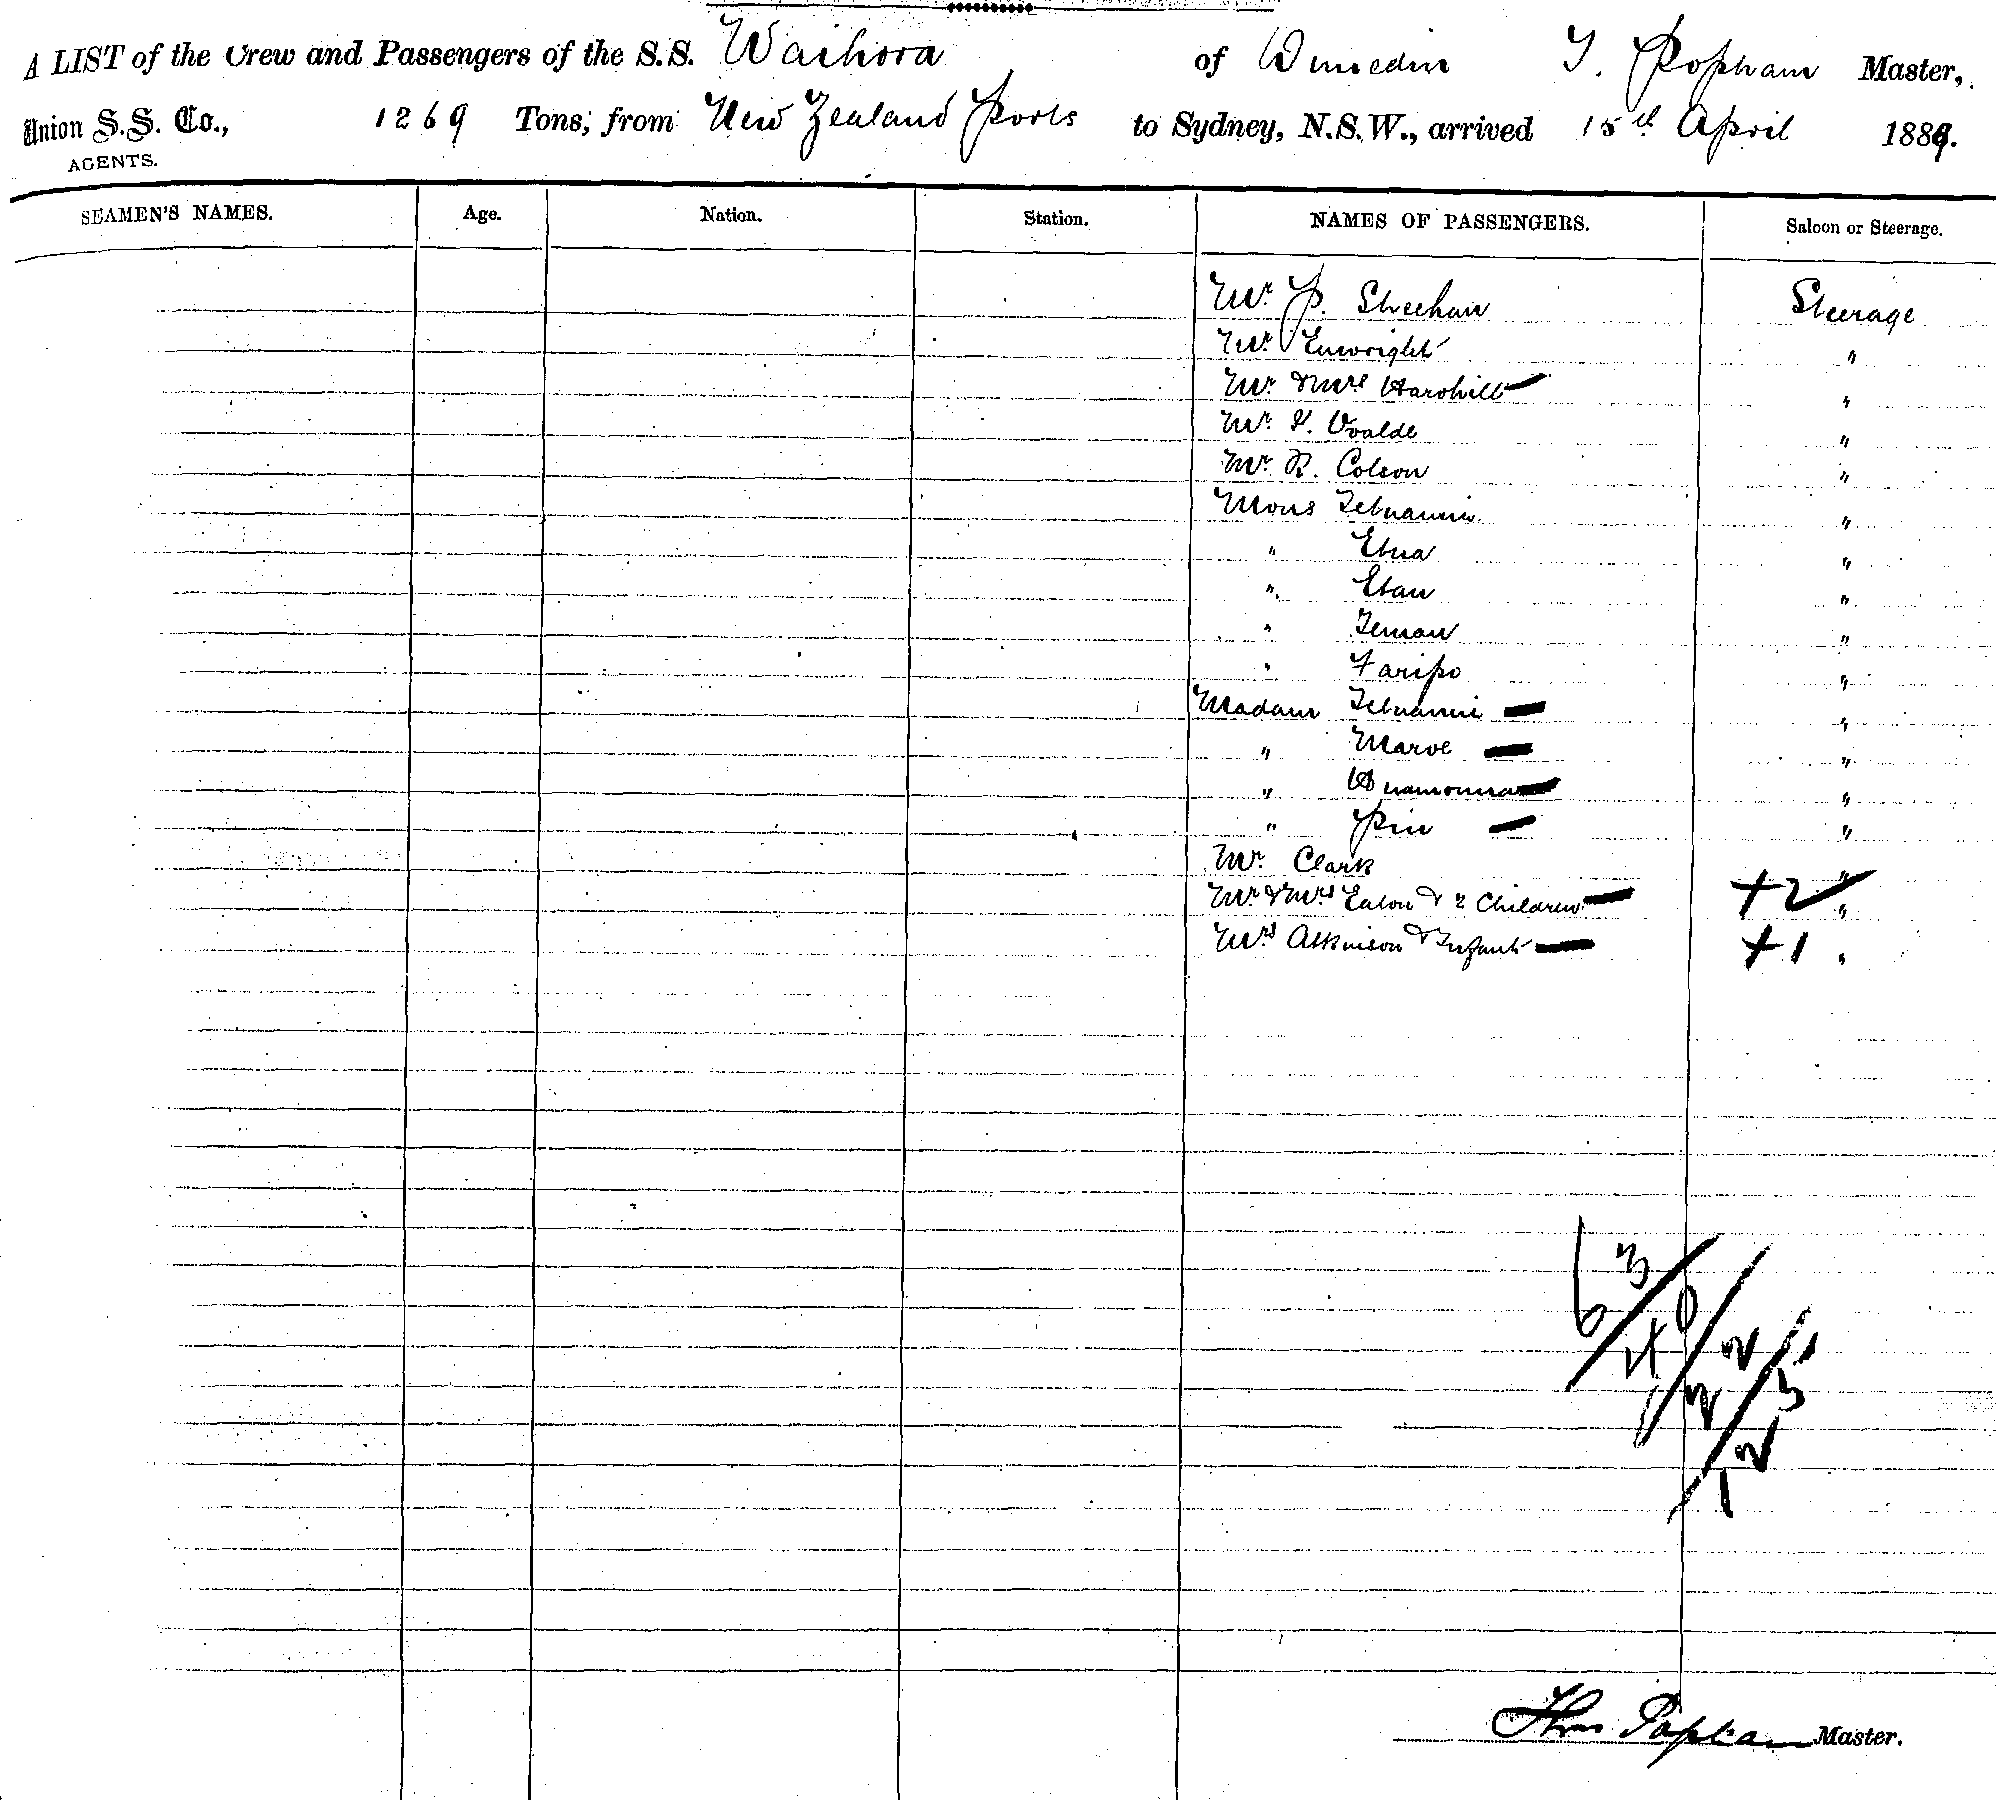 A LIST of the Crew and Passengers of the S.S. Waihora of Dunedin T. Popham Master,
Union S.S. Co., 1269 Tons, from New Zealand Ports to Sydney, N.S.W., arrived 15th April 1889.
AGENTS.
SEAMEN'S NAMES. Age. Nation. Station. NAMES OF PASSENGERS. Saloon or Steerage.
Mr. P. Sheehan Steerage
Mr. Enwright "
Mr. & Mrs "
Mr. "
Mr. R. Colson "
Mons Tetuanui "
" Etua "
" Etau "
" "
" Taripo "
Madam Tetuanui "
" Maroe "
" "
" "
Mr. Clark "
Mr & Mrs Eaton & 2 Children + 2 "
Mrs Atkinson & Infant + 1 "
Thos Popham Master.